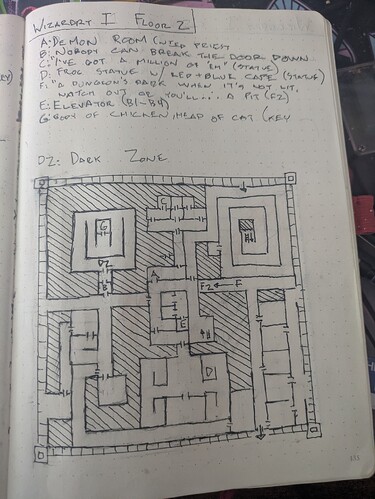 WIZARDRY I FLOOR 2
A: DEMON ROOM (W/ED PRIEST
B: NOBODY CAN BREAK THE DOOR DOWN
C: "I'VE GOT A MILLION OF 'EM" (STATUE)
D: FROG STATUE W/ RED + BLUE CAPE (STATUE)
F: "A DUNGEON'S DARK WHEN IT'S NOT LIT,
WATCH OUT OR YOU'LL.... A PIT (F2)
E: ELEVATOR (B1-B4)
G: BODY OF CHICKEN, HEAD OF CAT (KEY
DZ: DARK ZONE
C
G
DZ
A
B
F2 F
E
D